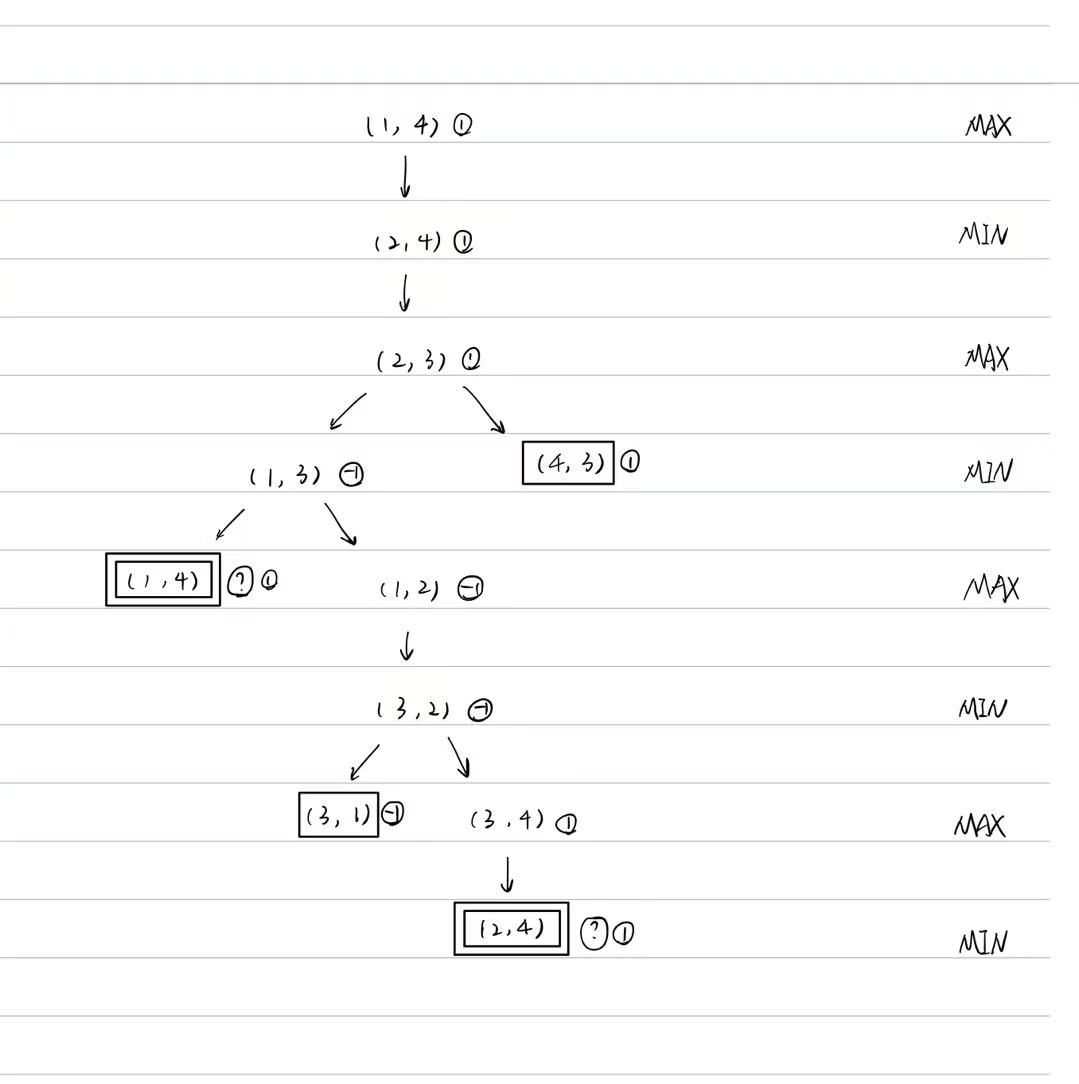 (1, 4) ① MAX
(2, 4) ① MIN
(2, 3) ① MAX
(1, 3) -1 (4, 3) ① MIN
(1, 4) ? ① (1, 2) -1 MAX
(3, 2) -1 MIN
(3, 1) -1 (3, 4) ① MAX
(2, 4) ? ① MIN